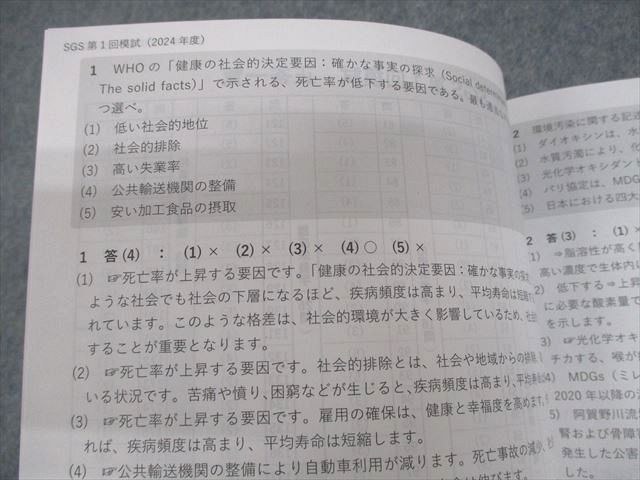 SGS 第1回模試（2024年度）
1 WHO の「健康の社会的決定要因：確かな事実の探求（Social determ
The solid facts）」で示される、死亡率が低下する要因である。最も適
つ選べ。
(1) 低い社会的地位
(2) 社会的排除
(3) 高い失業率
(4) 公共輸送機関の整備
(5) 安い加工食品の摂取
1 答(4) ： (1)× (2)× (3)× (4)○ (5)×
(1) ☞死亡率が上昇する要因です。「健康の社会的決定要因：確かな事実の探求
ような社会でも社会の下層になるほど、疾病頻度は高まり、平均寿命は短縮
れています。このような格差は、社会的環境が大きく影響しているため、社会
することが重要となります。
(2) ☞死亡率が上昇する要因です。社会的排除とは、社会や地域からの排除
いる状況です。苦痛や憤り、困窮などが生じると、疾病頻度は高まり、平均寿命
(3) ☞死亡率が上昇する要因です。雇用の確保は、健康と幸福度を高めます。
れば、疾病頻度は高まり、平均寿命は短縮します。
(4) ☞公共輸送機関の整備により自動車利用が減ります。死亡事故の減少、
は伸びます。
2 環境汚染に関する記述
(1) ダイオキシンは、水
(2) 水質汚濁により、化
(3) 光化学オキシダント
(4) パリ協定は、MDG
(5) 日本における四大
2 答(3) ： (1)×
(1) ⇒脂溶性が高く
高い濃度で生体内に
2) 低下する⇒上昇
に必要な酸素量で
を示します。
3) ☞光化学オキシ
チカする、喉が
4) MDGs（ミレ
2020年以降の
5) 阿賀野川流
腎および骨障害
発生した公害
した。